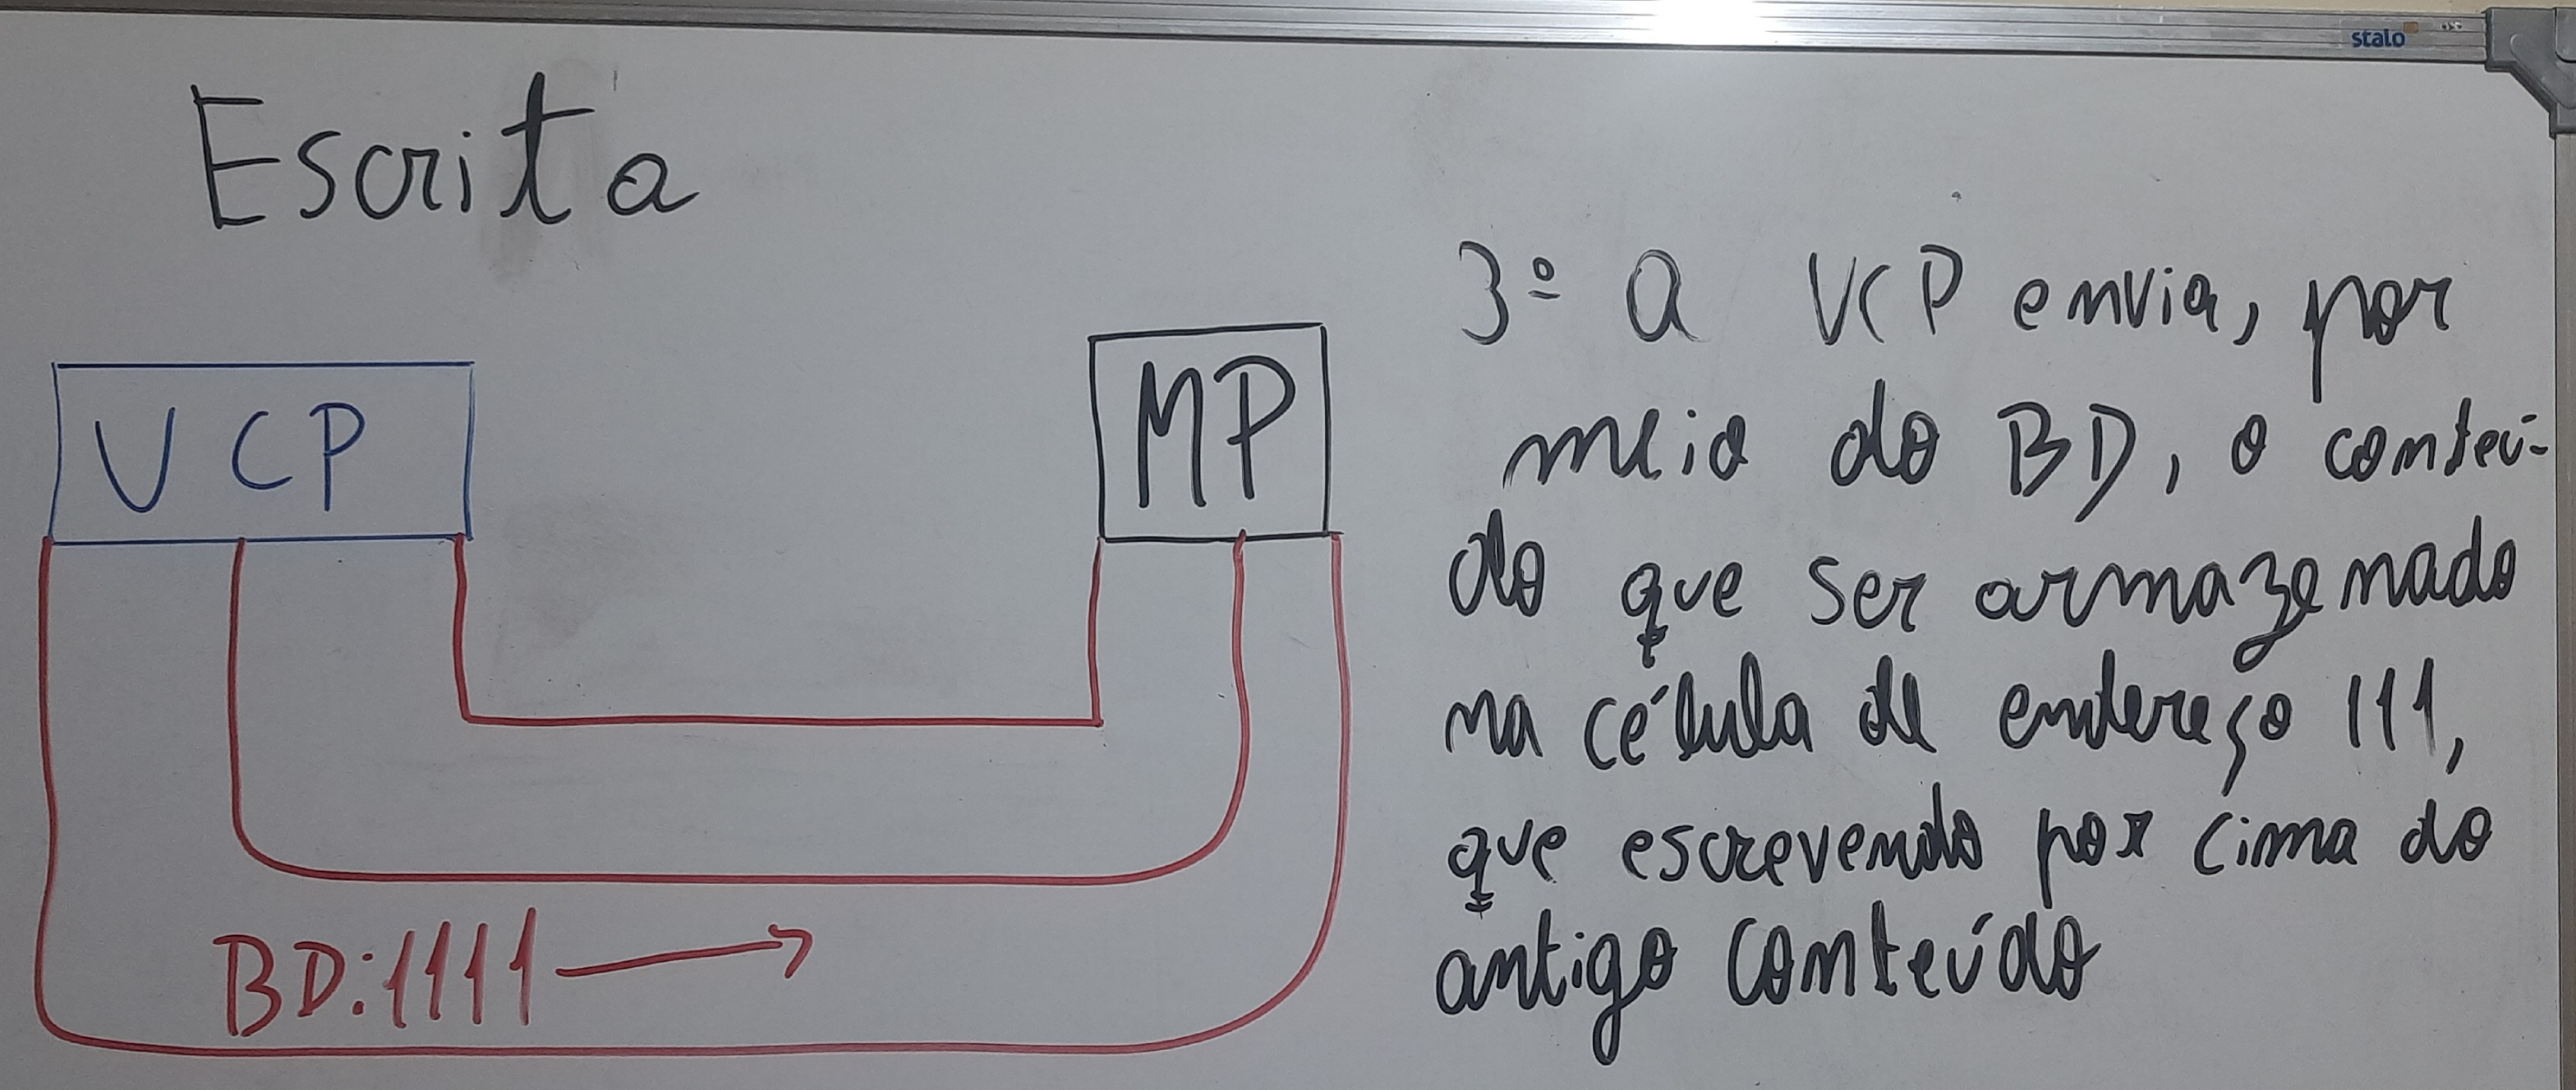 stalo
Escrita
UCP
MP
BD:1111
3º A UCP envia, por
meio do BD, o conteú-
do que ser armazenado
na célula de endereço 111,
que escrevendo por cima do
antigo conteúdo